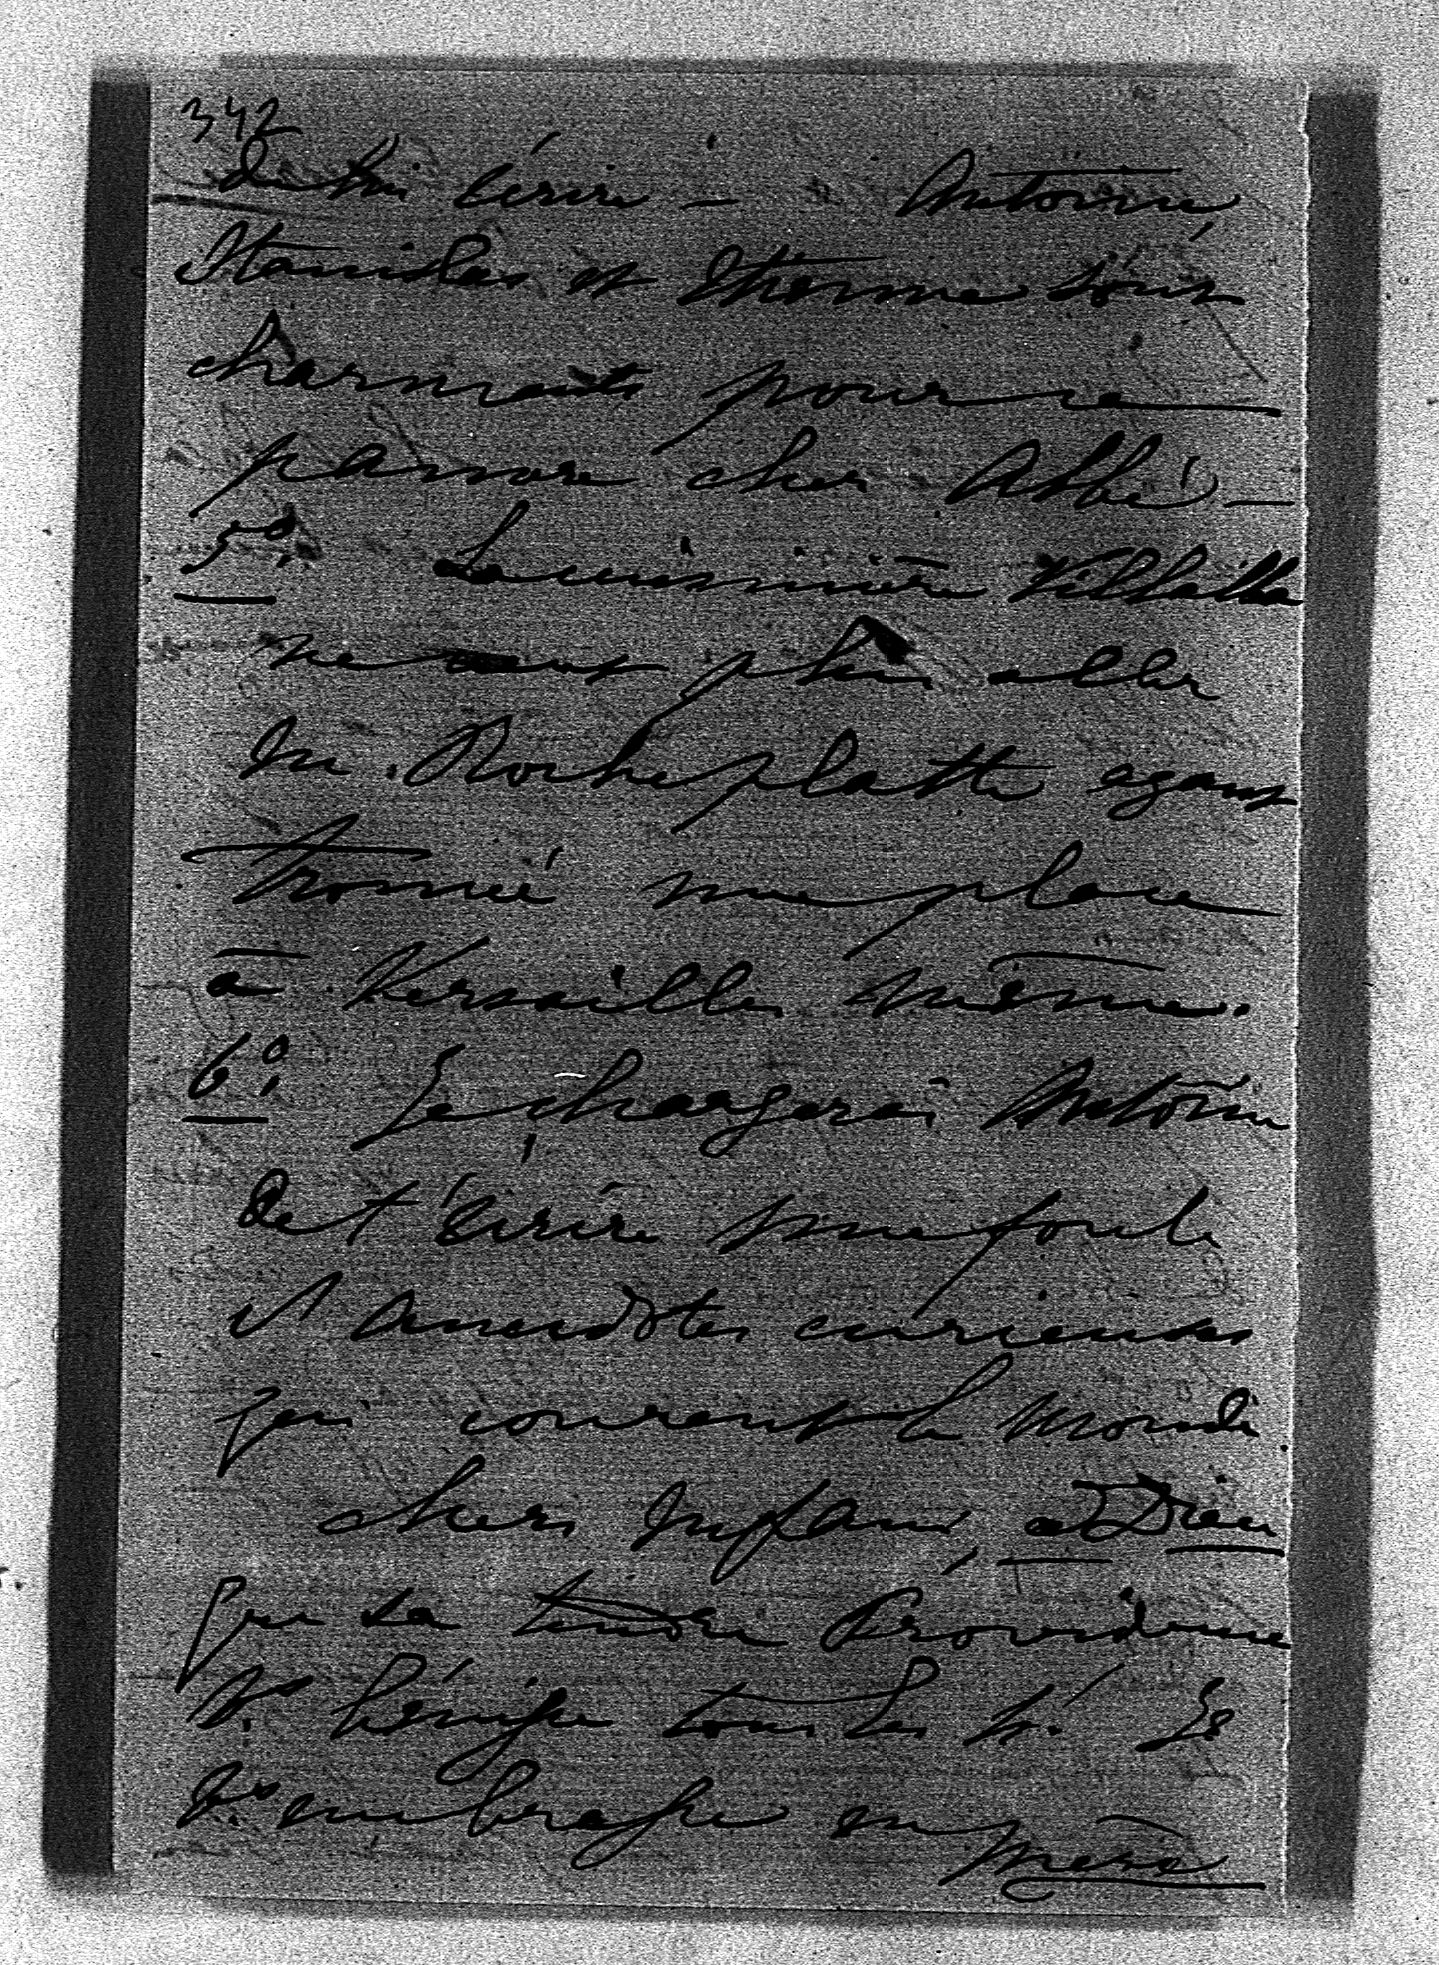 342
de lui écrire — Antoine,
Stanislas et Etienne sont
charmants pour ce
pauvre cher Abbé —
5º. La cuisinière Villalba
ne veut plus aller
M. Rocheplatte ayant
trouvé une place
à Versailles même.
6º. Je chargerai Antoine
de t'écrire une foule
d'anecdotes curieuses
qui courent le monde.
chers Enfans, à Dieu
que sa tendre Providence
Vs. bénisse tous les h. Je
Vs. embrasse en
Mère